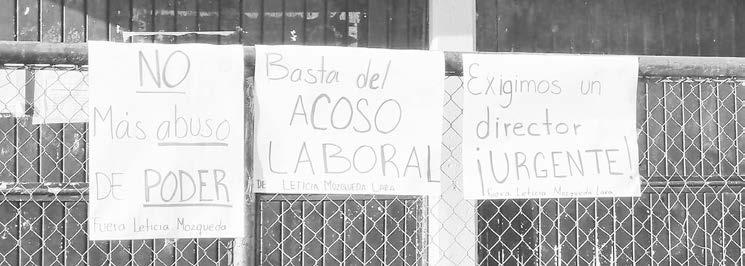 NO
Más abuso
DE PODER
Fuera Leticia Mozqueda
Basta del
ACOSO
LABORAL
DE LETICIA MOZQUEDA LARA
Exigimos un
director
¡URGENTE!
Fuera Leticia Mozqueda Lara